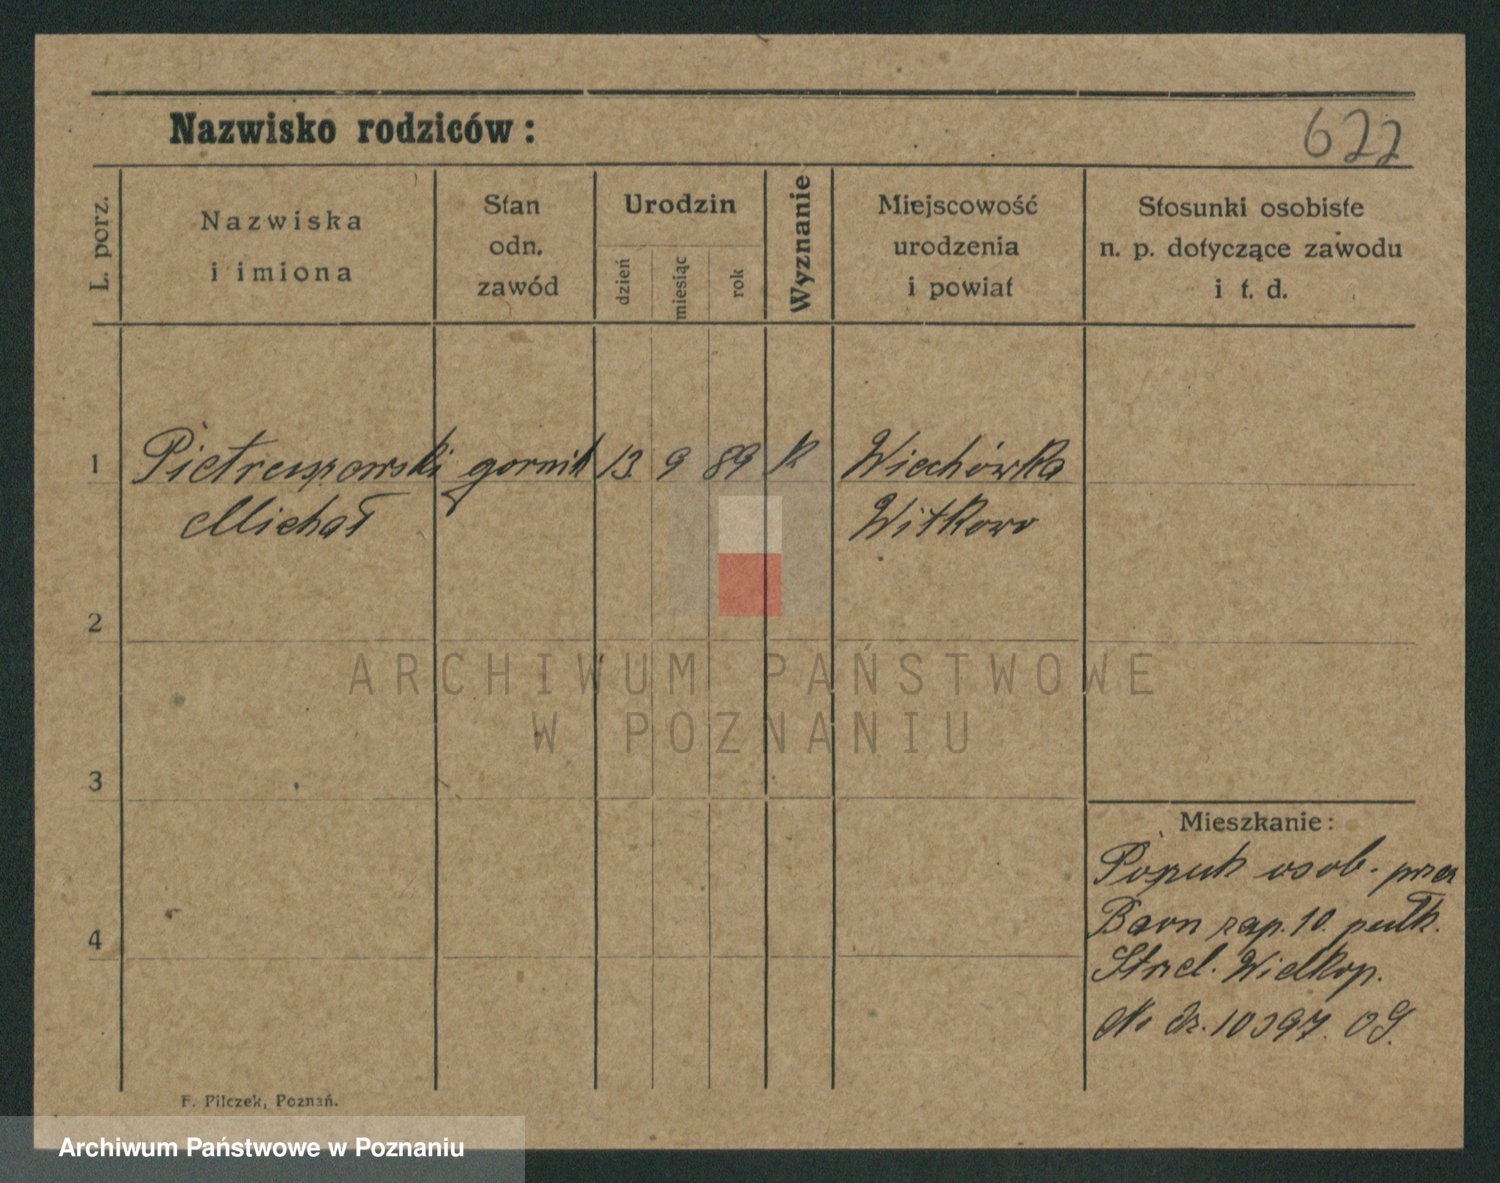 Nazwisko rodziców:
622
L. porz.
Nazwiska
i imiona
Stan
odn.
zawód
Urodzin
dzień
miesiąc
rok
Wyznanie
Miejscowość
urodzenia
i powiat
Stosunki osobiste
n. p. dotyczące zawodu
i t. d.
1
Pietruszowski gornik 13 9 89 k Wiechówka
Michał Witkowo
2
ARCHIWUM PAŃSTWOWE
W POZNANIU
3
Mieszkanie:
Poszuk osob. przez
Baon zap. 10. pułk.
4
Strzel. Wielkop.
No dz. 10397. OG.
F. Pilczek, Poznań.
Archiwum Państwowe w Poznaniu